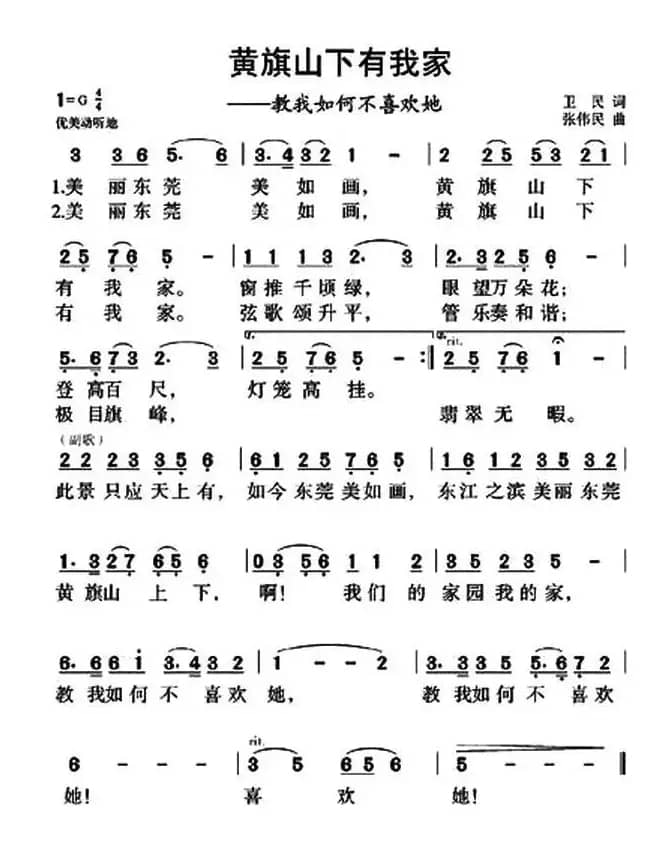 黄旗山下有我家
1=G 4/4 ——教我如何不喜欢她 卫 民 词
优美动听地 张伟民 曲
3 3 6 5. 6 | 3. 4 3 2 1 - | 2 2 5 5 3 2 1 |
1.美 丽东莞 美如画， 黄旗山下
2.美 丽东莞 美如画， 黄旗山下
2 5 7 6 5 - | 1 1 1 3 2. 3 | 2. 3 2 5 6 - |
有我家。 窗推千顷绿， 眼望万朵花；
有我家。 弦歌颂升平， 管乐奏和谐；
5. 6 7 3 2. 3 | 2 5 7 6 5 - :| rit. 2 5 7 6 1 - |
登高百尺， 灯笼高挂。
极目旗峰， 翡翠无暇。
（副歌）
2 2 2 3 3 5 6 | 6 1 2 5 7 6 5 | 1 6 1 2 3 5 3 2 |
此景只应天上有， 如今东莞美如画， 东江之滨美丽东莞
1. 3 2 7 6 5 5 - | 0 3 5 6 1 1 2 | 3 5 2 3 5 - |
黄旗山上下， 啊！ 我们的家园我的家，
6. 6 6 i 3. 4 3 2 | 1 - - 2 | 3. 3 3 5 5. 6 7 2 |
教我如何不喜欢她， 教我如何不喜欢
6 - - - | rit. 3 5 6 5 6 | 5 - - - ‖
她！ 喜欢她！